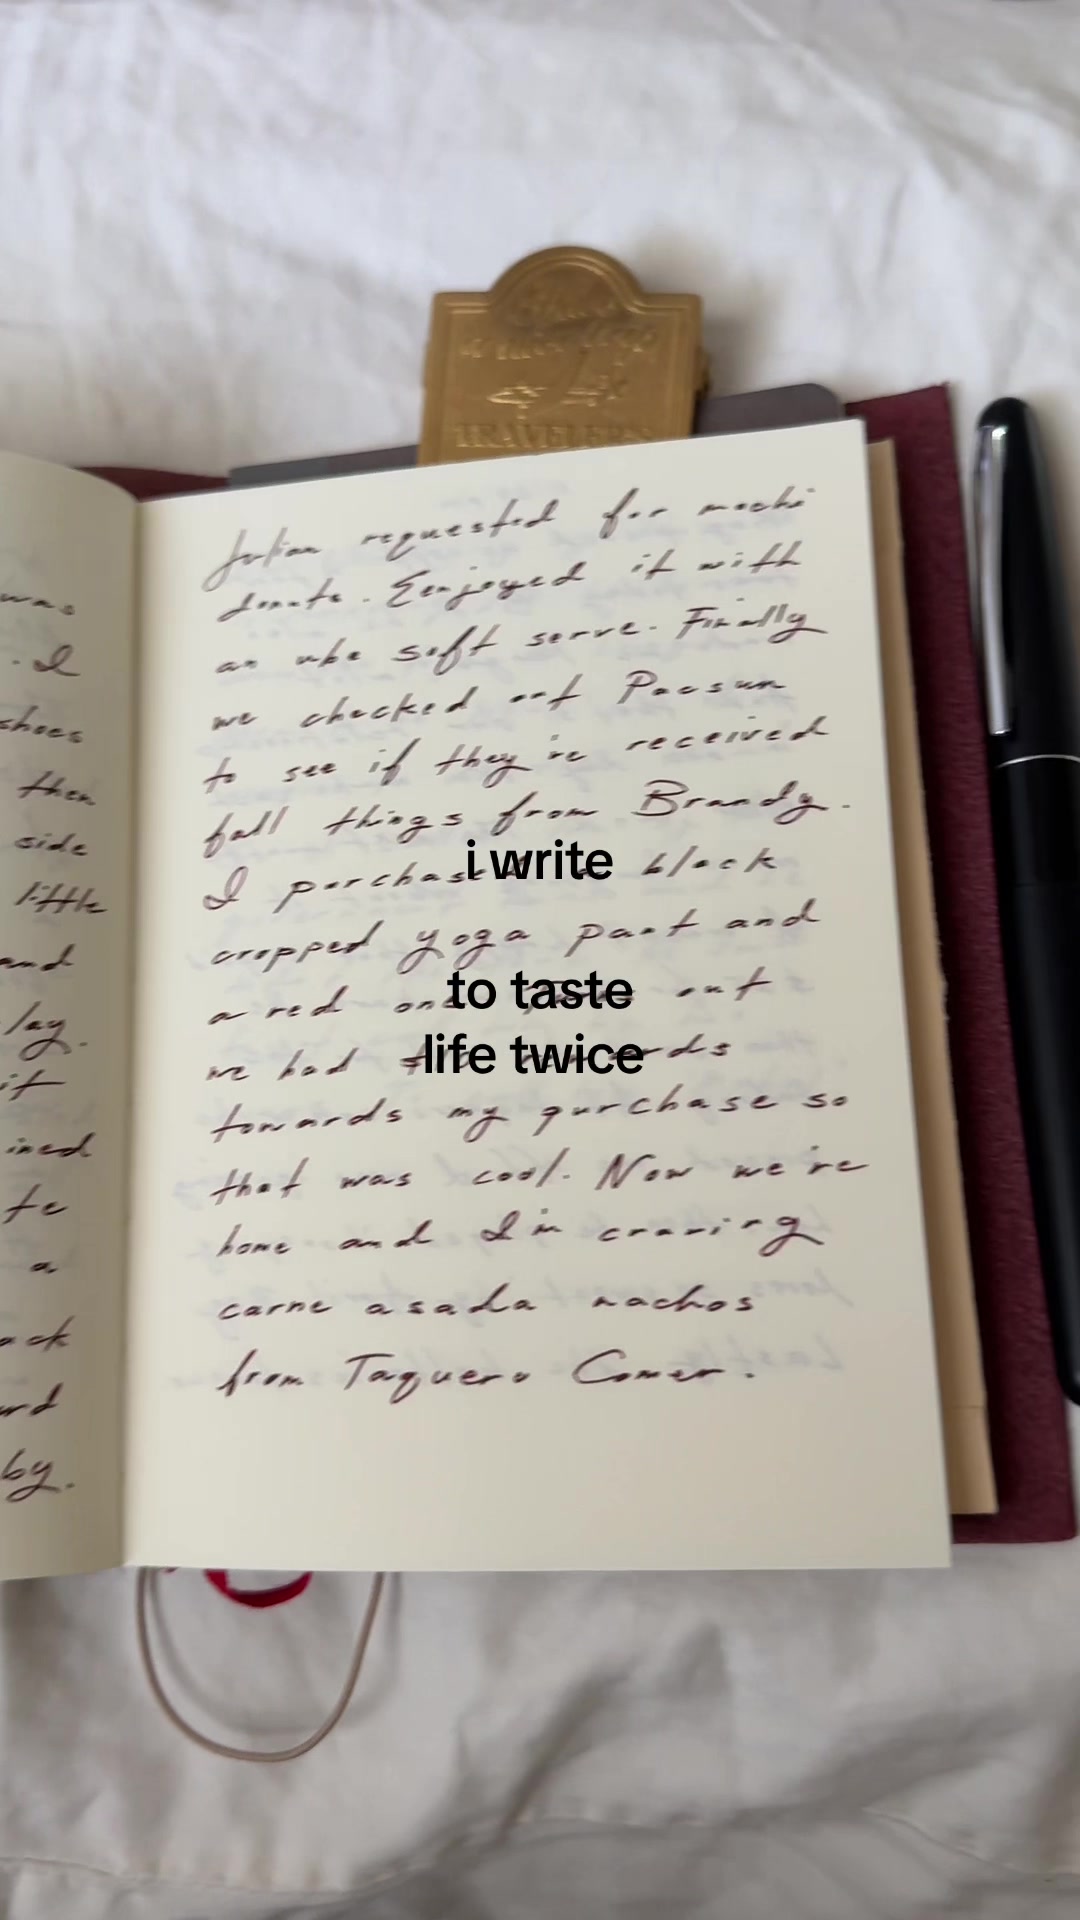 TRAVELER'S
Julian requested for mochi
donuts. Eenjoyed it with
an ube soft serve. Finally
we checked out Pacsun
to see if they're received
fall things from Brandy.
I purchased a black
cropped yoga pant and
a red one. Turns out
we had rewards
towards my purchase so
that was cool. Now we're
home and I'm craving
carne asada nachos
from Taquero Comer.
was
. I
shoes
then
side
little
and
lay.
it
ined
te
a
ack
urd
by.
i write
to taste
life twice